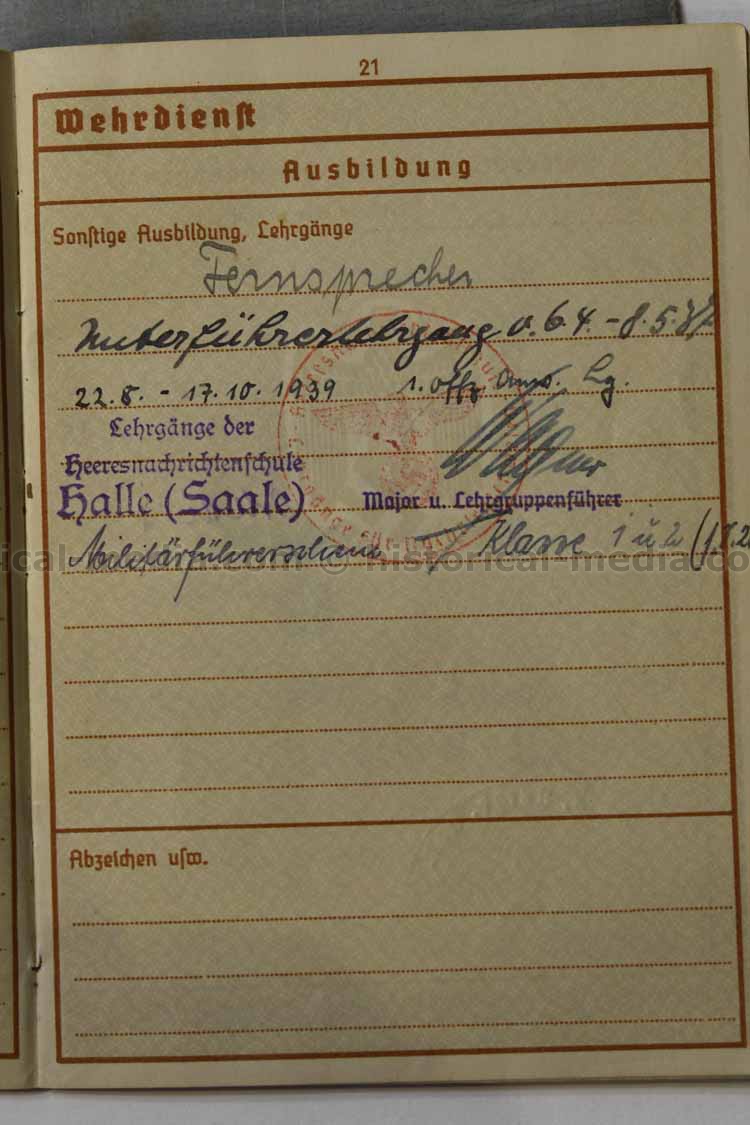 21
Wehrdienst
Ausbildung
Sonstige Ausbildung, Lehrgänge
Fernsprecher
Unterführerlehrgang v. 6.4. - 8.5.
22.8. - 17.10.1939 1. Offz. Lg.
Lehrgänge der
Heeresnachrichtenschule
Halle (Saale)
Major u. Lehrgruppenführer
Militärführerschein Klasse 1 u 2
historical-media.co
Abzeichen usw.